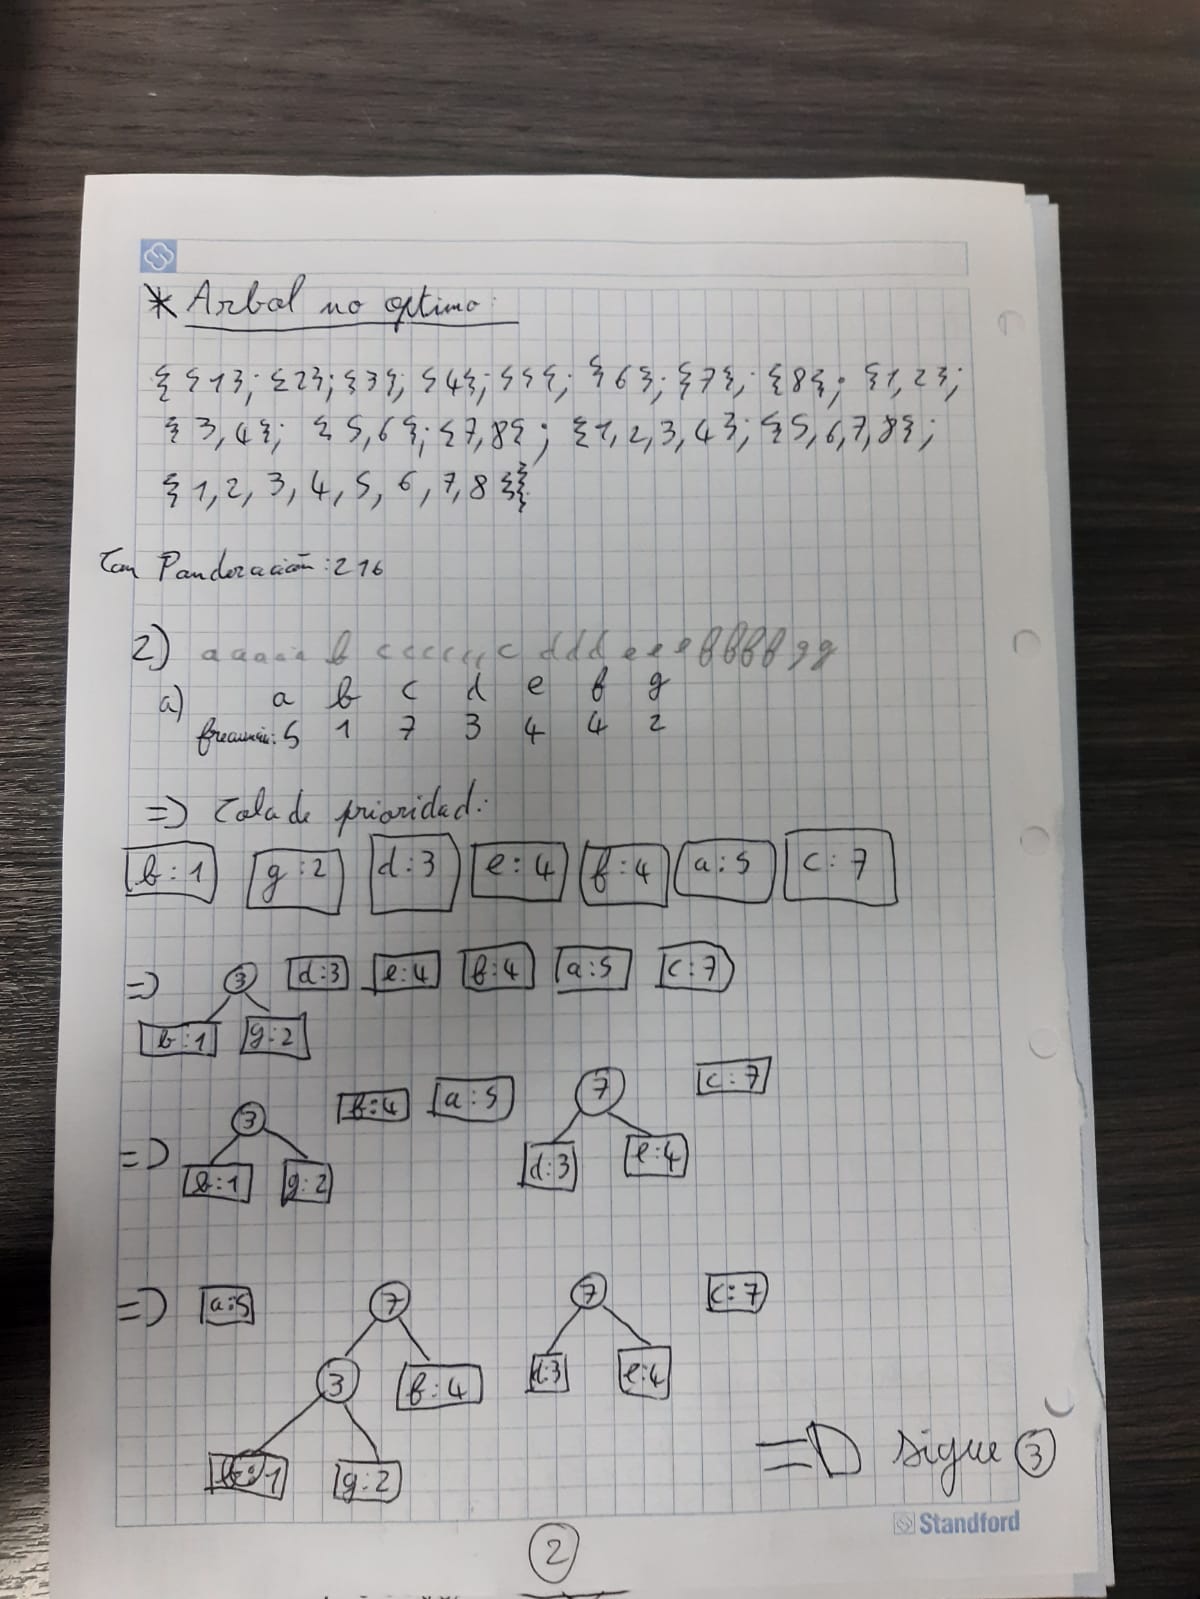 * Arbol no optimo:
{ {1}; {2}; {3}; {4}; {5}; {6}; {7}; {8}; {1,2};
{3,4}; {5,6}; {7,8}; {1,2,3,4}; {5,6,7,8};
{1,2,3,4,5,6,7,8}}
Con Ponderación: 216
2) aaaaa b ccccccc ddd eeee ffff gg
a) a b c d e f g
frecuencia: 5 1 7 3 4 4 2
=> Cola de prioridad:
b:1 g:2 d:3 e:4 f:4 a:5 c:7
=> 3 d:3 e:4 f:4 a:5 c:7
b:1 g:2
=> 3 f:4 a:5 7 c:7
b:1 g:2 d:3 e:4
=> a:5 7 7 c:7
3 f:4 d:3 e:4
b:1 g:2
=> sigue 3
Standford
2